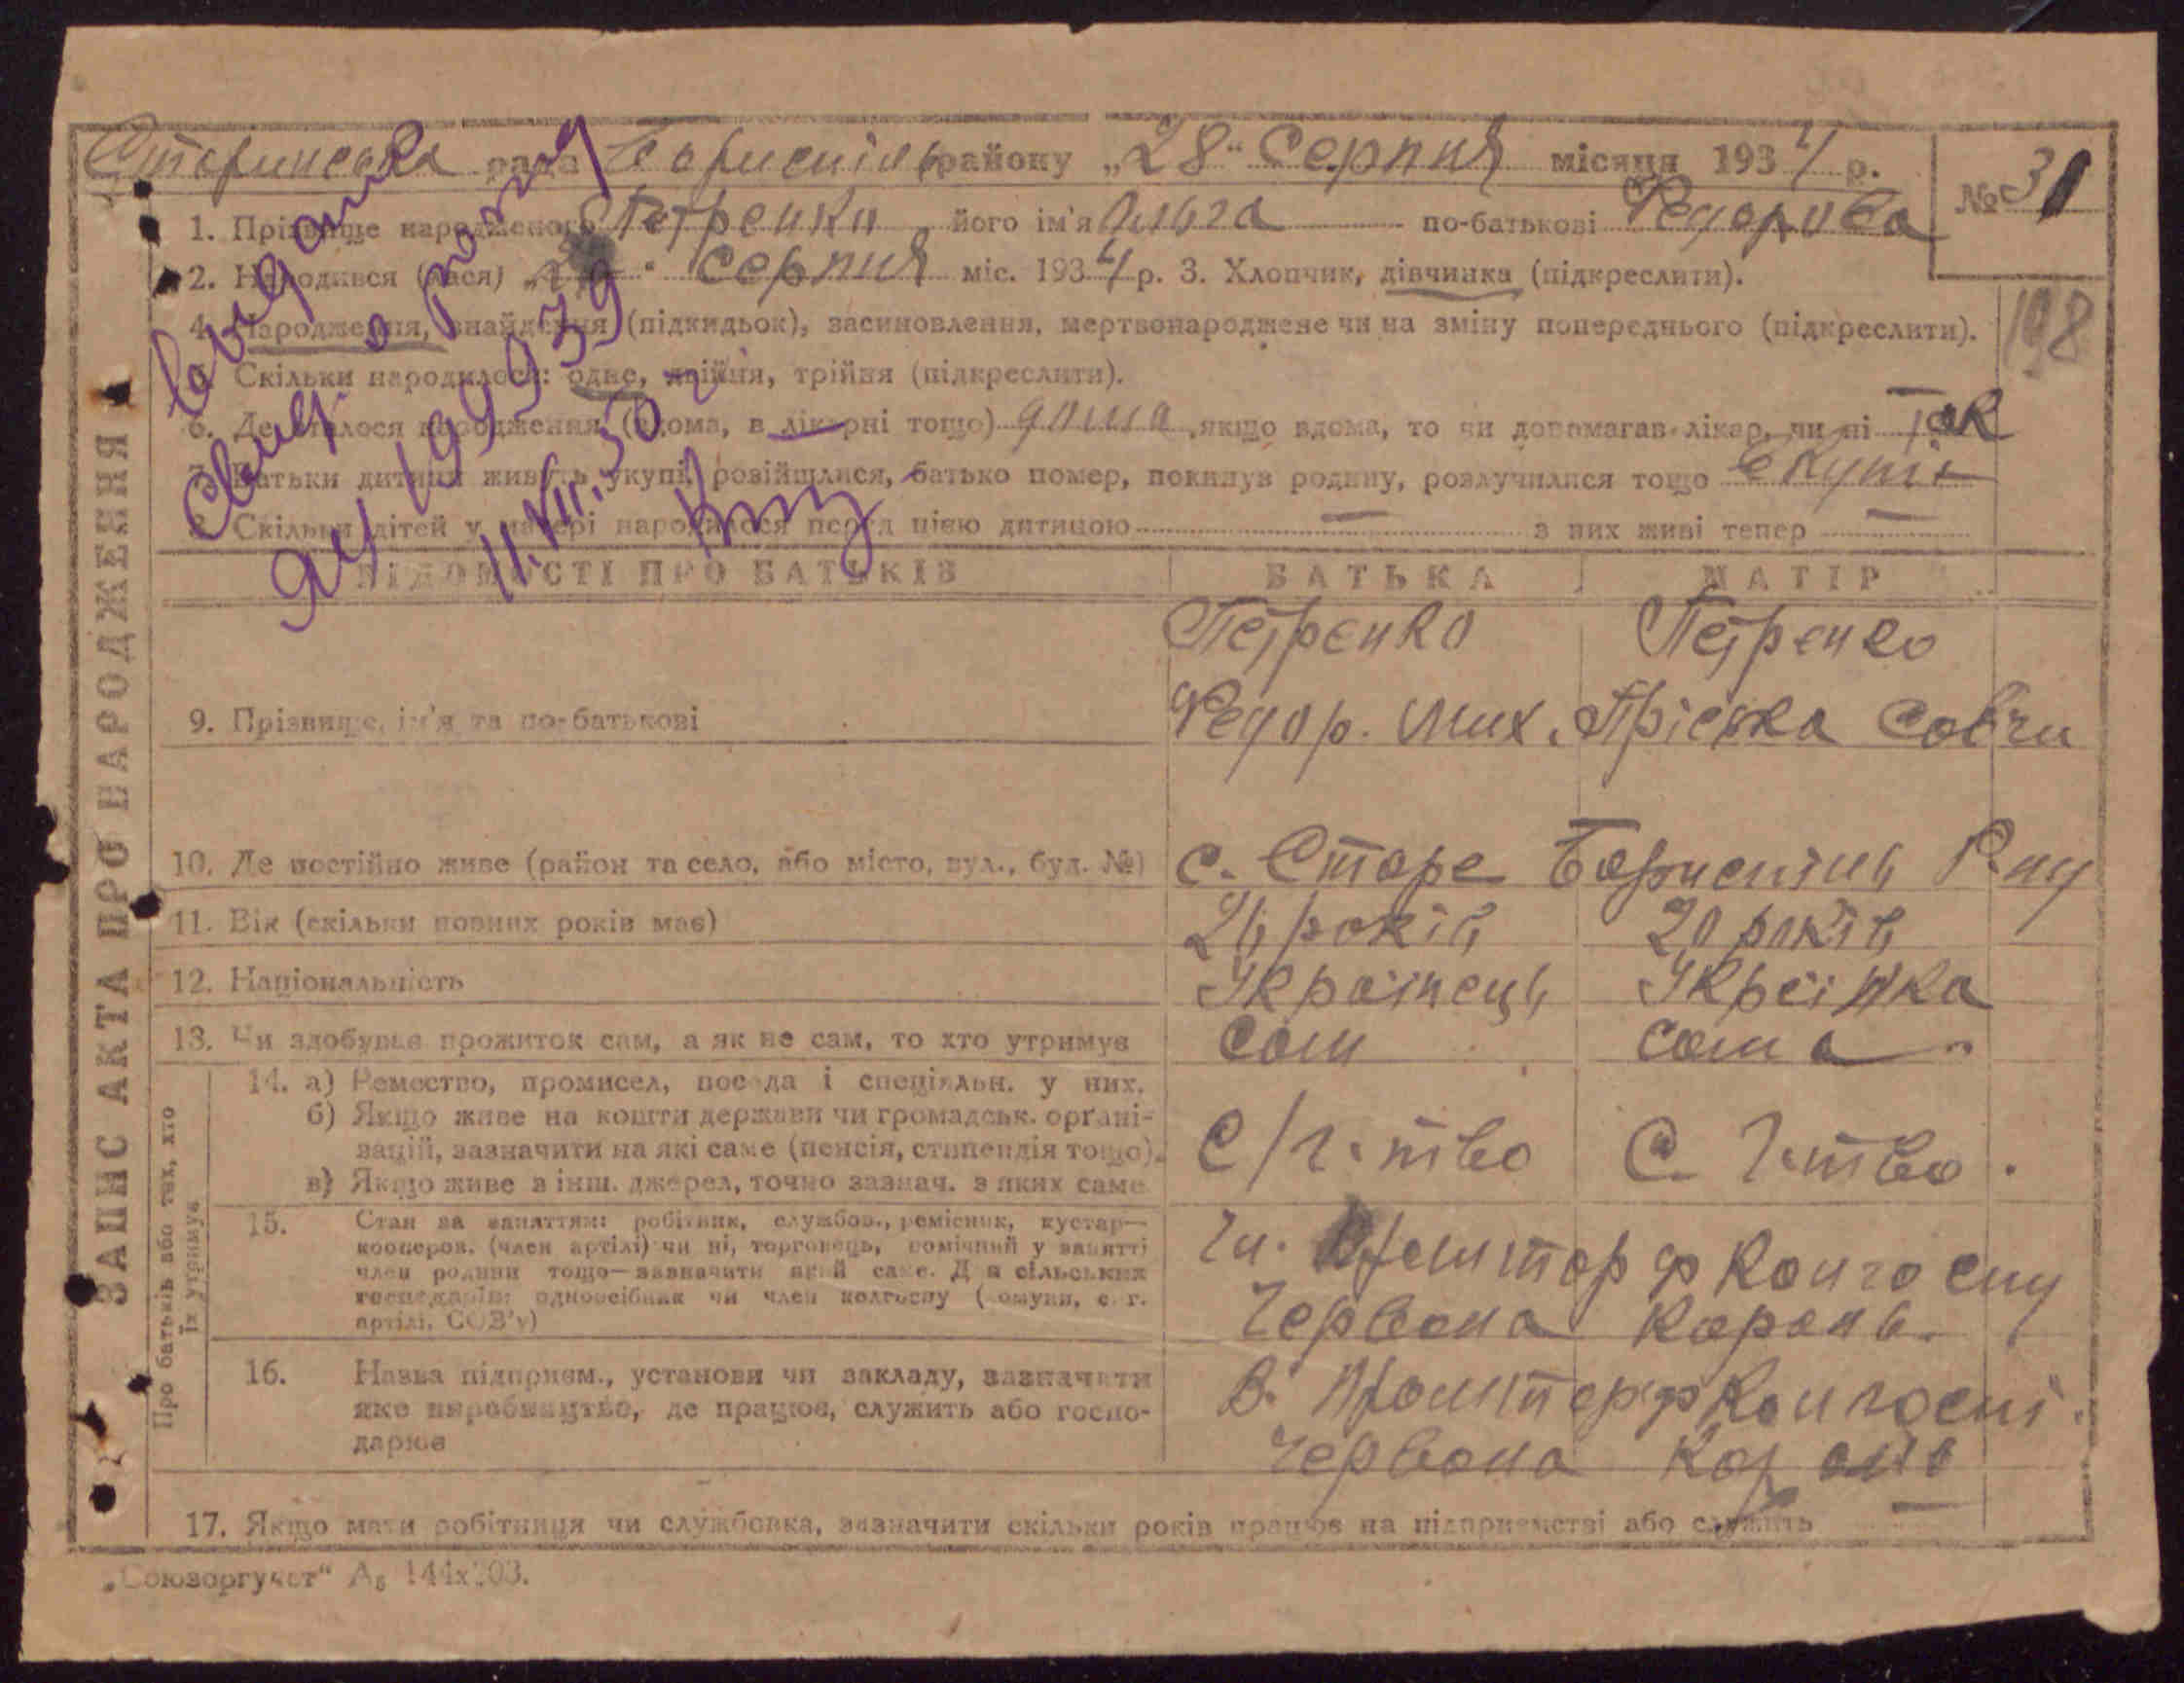 Старинська рада Бориспіль району „28“ Серпня місяця 1934 р.
№ 31
1. Прізвище народженого Петренко його ім'я Ольга по-батькові Федорова
2. Народився (лася) „ “ Серпня міс. 1934 р. 3. Хлопчик, дівчинка (підкреслити).
198
4. Народження, знайдення (підкидьок), засиновлення, мертвонароджене чи на зміну попереднього (підкреслити).
5. Скільки народилося: одне, двійня, трійня (підкреслити).
6. Де сталося народження (вдома, в лікарні тощо) дома якщо вдома, то чи допомагав лікар, чи ні Так
7. Батьки дитини живуть укупі, розійшлися, батько помер, покинув родину, розлучилися тощо вкупі
8. Скільки дітей у матері народилося перед цією дитиною — з них живі тепер —
свид. о рожд
ЯЧ 199939
11.VII.50 г
ВІДОМОСТІ ПРО БАТЬКІВ БАТЬКА МАТІР
Петренко Петренко
9. Прізвище, ім'я та по-батькові Федор. Мих. Пріська Савви
10. Де постійно живе (район та село, або місто, вул., буд. №) с. Старе Бориспіль Р-ну
11. Вік (скільки повних років має) років 20 років
12. Національність Українець Українка
13. Чи здобуває прожиток сам, а як не сам, то хто утримує сам сама
14. а) Ремество, промисел, посада і спеціяльн. у них.
б) Якщо живе на кошти держави чи громадськ. органі-
зацій, зазначити на які саме (пенсія, стипендія тощо). С/г-тво С. г-тво
в) Якщо живе з інш. джерел, точно зазнач. з яких саме
15. Стан за заняттям: робітник, службов., ремісник, кустар—
кооперов. (член артілі) чи ні, торговець, помічний у занятті
член родини тощо—зазначити який саме. Для сільських
господарів: одноосібник чи член колгоспу (комуни, с. г.
артілі, СОЗ'у)
Чл. колгоспу
Червона
16. Назва підприєм., установи чи закладу, зазначити
яке виробництво, де працює, служить або госпо-
дарює
В. колгоспі
Червона
17. Якщо мати робітниця чи службовка, зазначити скільки років працює на підприємстві або служить —
ЗАПИС АКТА ПРО НАРОДЖЕННЯ
Про батьків або тих, хто
їх утримує
„Союзоргучет“ А₅ 144х203.